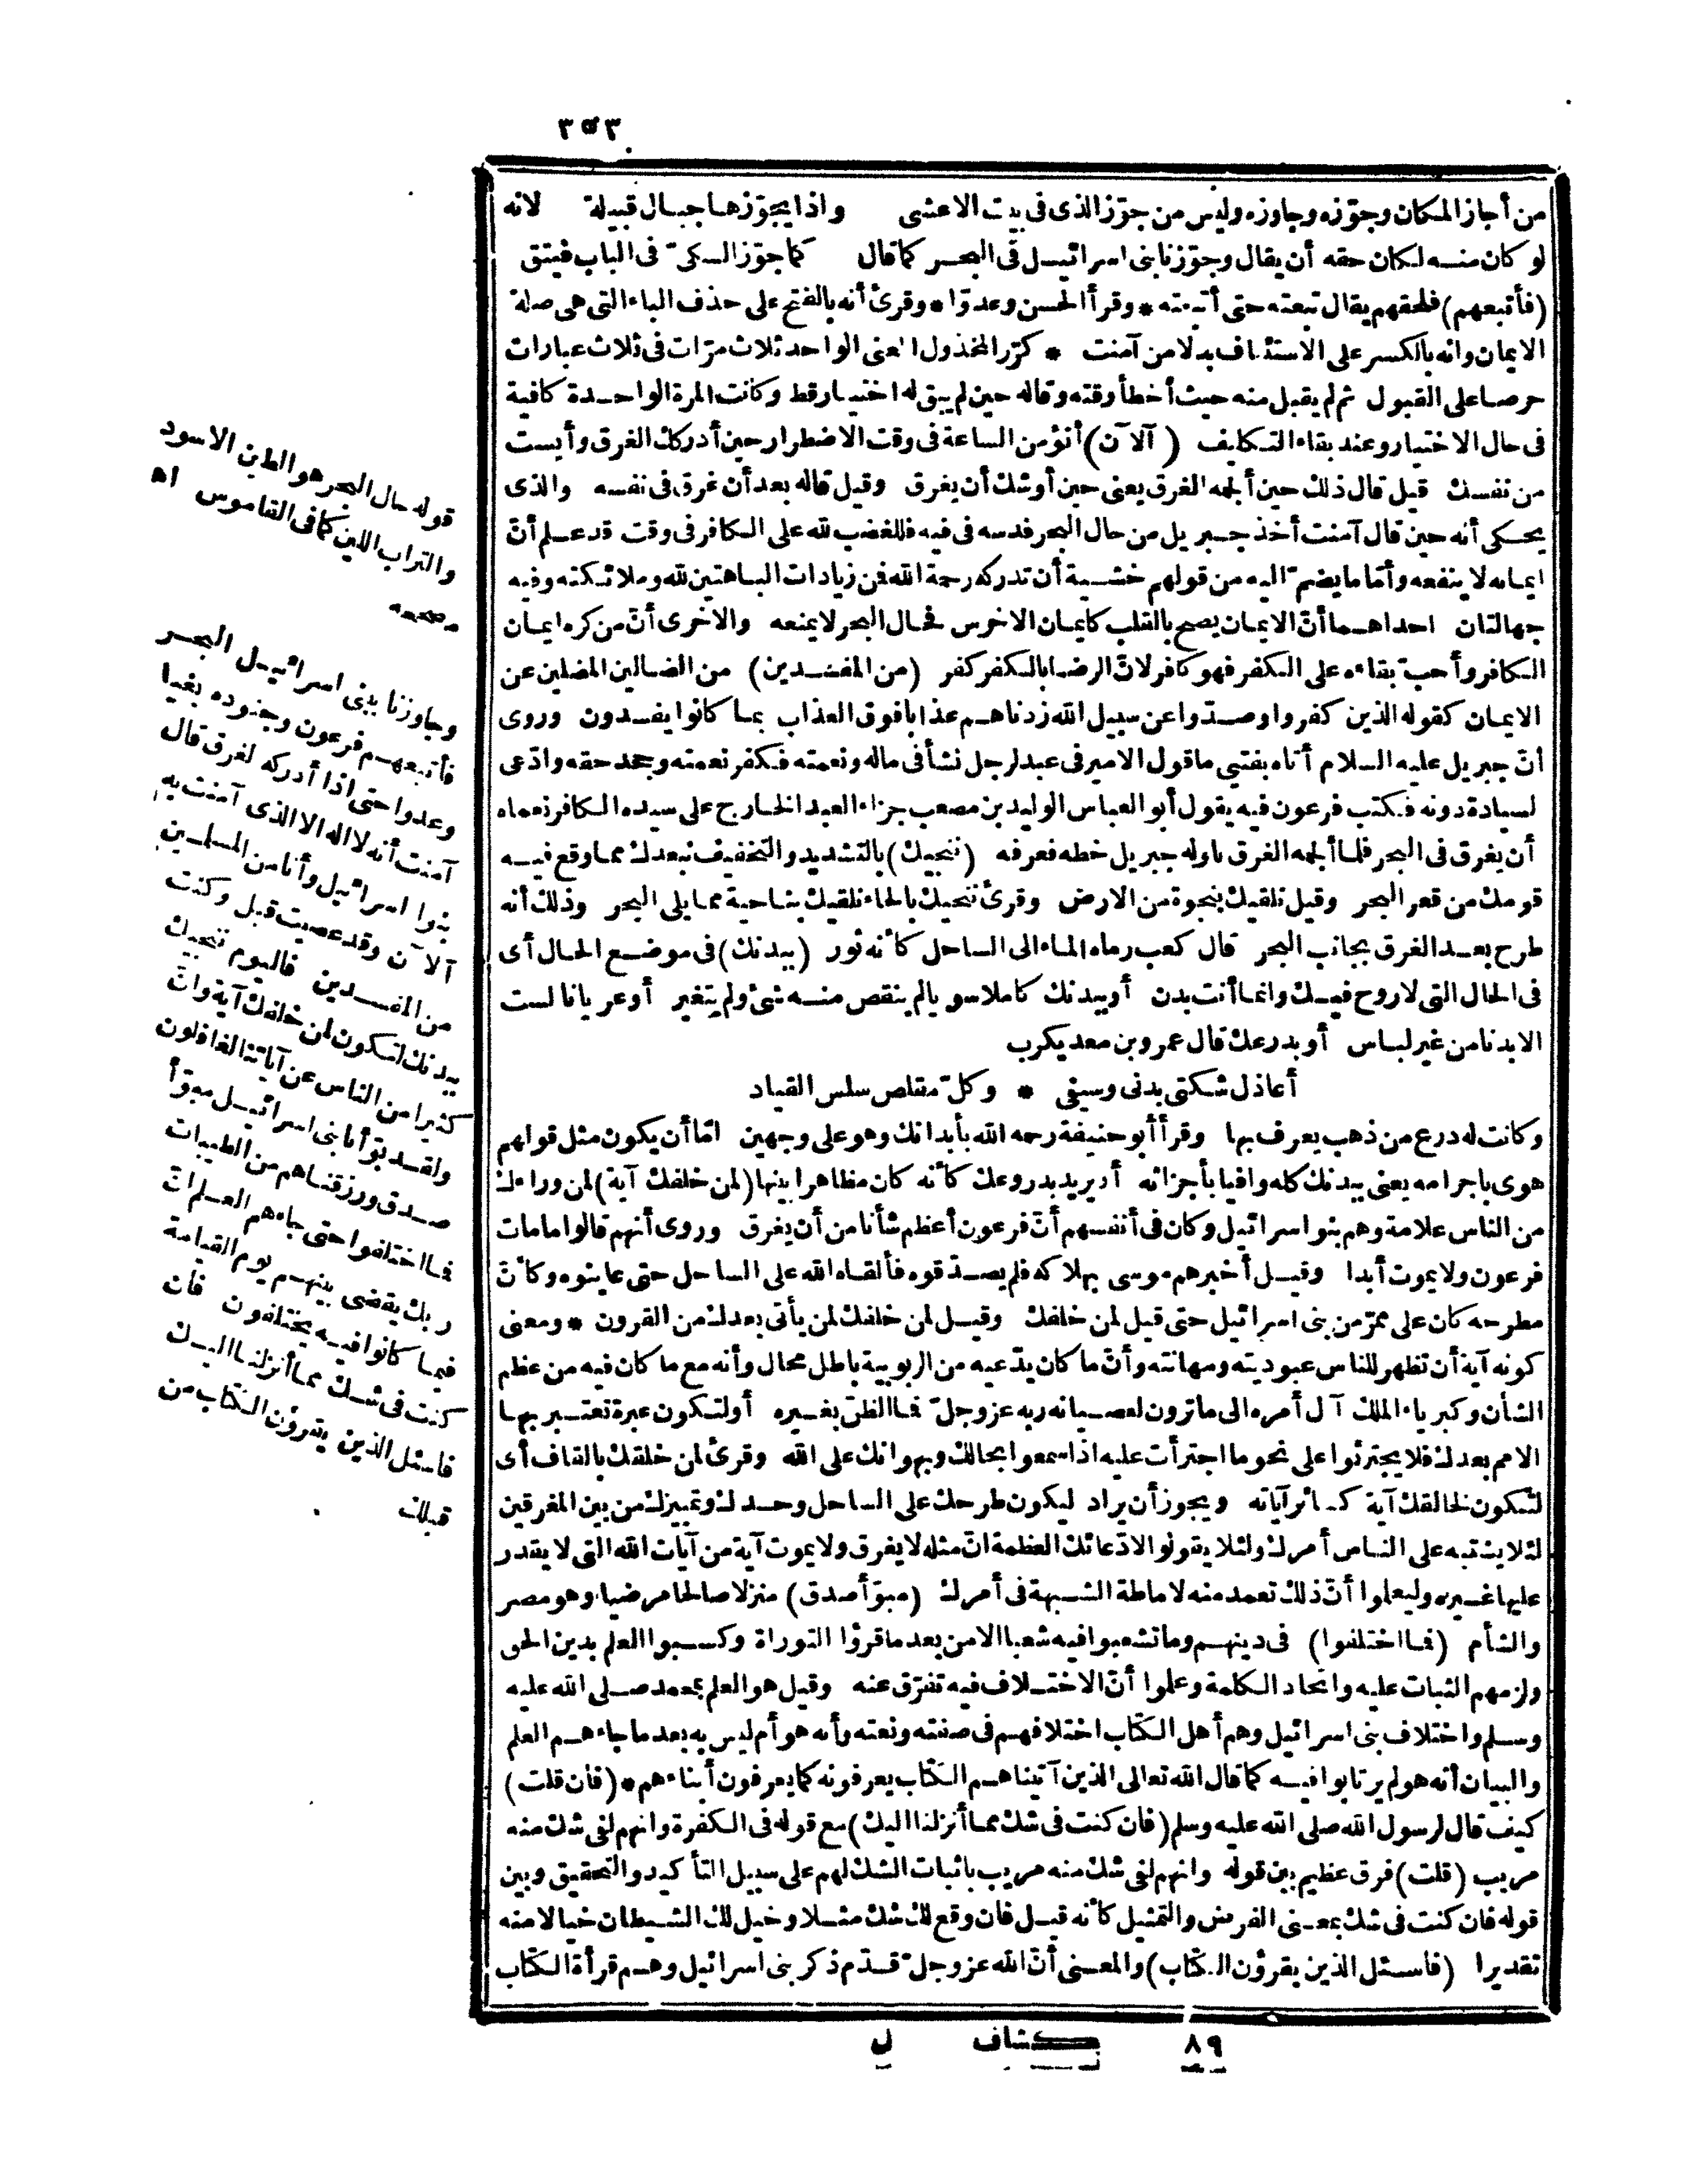 ٣٥٣
من أجاز المكان وجوّزه وجاوزه وليس من جوّز الذى فى بيت الاعشى واذا يجوّزها جبال قبيلة لانه
لو كان منه لكان حقه أن يقال وجوّزنا بنى اسرائيل فى البحر كما قال كما جوّز السكىّ فى الباب فيتق
(فأتبعهم) فلحقهم يقال تبعته حتى أتبعته * وقرأ الحسن وعدوّا * وقرئ أنه بالفتح على حذف الباء التى هى صلة
الايمان وانه بالكسر على الاستئناف بدلا من آمنت * كرّر المخذول المعنى الواحد ثلاث مرّات فى ثلاث عبارات
حرصا على القبول ثم لم يقبل منه حيث أخطأ وقته وقاله حين لم يبق له اختيار قط وكانت المرة الواحدة كافية
فى حال الاختيار وعند بقاء التكليف (آلآن) أتؤمن الساعة فى وقت الاضطرار حين أدركك الغرق وأيست
من نفسك قيل قال ذلك حين ألجمه الغرق يعنى حين أوشك أن يغرق وقيل قاله بعد أن غرق فى نفسه والذى
يحكى أنه حين قال آمنت أخذ جبريل من حال البحر فدسه فى فيه فللغضب لله على الكافر فى وقت قد علم أنّ
ايمانه لا ينفعه وأمّا ما يضمّ اليه من قولهم خشية أن تدركه رحمة الله فمن زيادات الباهتين لله وملائكته وفيه
جهالتان احداهما أنّ الايمان يصح بالقلب كايمان الاخرس فحال البحر لا يمنعه والاخرى أنّ من كره ايمان
الكافر وأحبّ بقاءه على الكفر فهو كافر لانّ الرضا بالكفر كفر (من المفسدين) من الضالين المضلين عن
الايمان كقوله الذين كفروا وصدّوا عن سبيل الله زدناهم عذابا فوق العذاب بما كانوا يفسدون وروى
أنّ جبريل عليه السلام أتاه بفتيى ما قول الامير فى عبد لرجل نشأ فى ماله ونعمته فكفر نعمته وجحد حقه وادّعى
لسيادة دونه فكتب فرعون فيه يقول أبو العباس الوليد بن مصعب جزاء العبد الخارج على سيده الكافر نعماه
أن يغرق فى البحر فلما ألجمه الغرق ناوله جبريل خطه فعرفه (ننجيك) بالتشديد والتخفيف نبعدك مما وقع فيه
قومك من قعر البحر وقيل نلقيك بنجوة من الارض وقرئ ننحيك بالحاء نلقيك بناحية مما يلى البحر وذلك أنه
طرح بعد الغرق بجانب البحر قال كعب رماه الماء الى الساحل كأنه ثور (ببدنك) فى موضع الحال أى
فى الحال التى لا روح فيك وانما أنت بدن أو ببدنك كاملا سويا لم ينقص منه شئ ولم يتغير أو عريانا لست
الا بدنا من غير لباس أو بدرعك قال عمرو بن معديكرب
أعاذل شكتى بدنى وسيفى * وكلّ مقلص سلس القياد
وكانت له درع من ذهب يعرف بها وقرأ أبو حنيفة رحمه الله بأبدانك وهو على وجهين امّا أن يكون مثل قولهم
هوى باجرامه يعنى ببدنك كله وافيا بأجزائه أو يريد بدروعك كأنه كان مظاهرا بينها (لمن خلفك آية) لمن وراءك
من الناس علامة وهم بنو اسرائيل وكان فى أنفسهم أنّ فرعون أعظم شأنا من أن يغرق وروى أنهم قالوا ما مات
فرعون ولا يموت أبدا وقيل أخبرهم موسى بهلاكه فلم يصدّقوه فألقاه الله على الساحل حتى عاينوه وكأنّ
مطرحه كان على ممرّ من بنى اسرائيل حتى قيل لمن خلفك وقيل لمن خلفك لمن يأتى بعدك من القرون * ومعنى
كونه آية أن تظهر للناس عبوديته ومهانته وأنّ ما كان يدّعيه من الربوبية باطل محال وأنه مع ما كان فيه من عظم
الشأن وكبرياء الملك آل أمره الى ما ترون لعصيانه ربه عز وجلّ فما الظنّ بغيره أو لتكون عبرة تعتبر بها
الامم بعدك فلا يجترئوا على نحو ما اجترأت عليه اذا سمعوا بحالك وبهوانك على الله وقرئ لمن خلقك بالقاف أى
لتكون لخالقك آية كسائر آياته ويجوز أن يراد ليكون طرحك على الساحل وحدك وتمييزك من بين المغرقين
لئلا يشتبه على الناس أمرك ولئلا يقولوا لادّعائك العظمة انّ مثله لا يغرق ولا يموت آية من آيات الله التى لا يقدر
عليها غيره وليعلموا أنّ ذلك تعمد منه لاماطة الشبهة فى أمرك (مبوّأ صدق) منزلا صالحا مرضيا وهو مصر
والشأم (فما اختلفوا) فى دينهم وما تشعبوا فيه شعبا الا من بعد ما قرؤا التوراة وكسبوا العلم بدين الحق
ولزمهم الثبات عليه واتحاد الكلمة وعلموا أنّ الاختلاف فيه تفرّق عنه وقيل هو العلم بمحمد صلى الله عليه
وسلم واختلاف بنى اسرائيل وهم أهل الكتاب اختلافهم فى صفته ونعته وأنه هو أم ليس به بعد ما جاءهم العلم
والبيان أنه هو لم يرتابوا فيه كما قال الله تعالى الذين آتيناهم الكتاب يعرفونه كما يعرفون أبناءهم * (فان قلت)
كيف قال لرسول الله صلى الله عليه وسلم (فان كنت فى شك مما أنزلنا اليك) مع قوله فى الكفرة وانهم لفى شك منه
مريب (قلت) فرق عظيم بين قوله وانهم لفى شك منه مريب باثبات الشك لهم على سبيل التأكيد والتحقيق وبين
قوله فان كنت فى شك بمعنى الفرض والتمثيل كأنه قيل فان وقع لك شك مثلا وخيل لك الشيطان خيالا منه
تقديرا (فاسئل الذين يقرؤن الكتاب) والمعنى أنّ الله عز وجلّ قدّم ذكر بنى اسرائيل وهم قرأة الكتاب
قوله حال البحر هو الطين الاسود
والتراب اللين كما فى القاموس اه
مصححه
وجاوزنا ببنى اسرائيل البحر
فأتبعهم فرعون وجنوده بغيا
وعدوا حتى اذا أدركه الغرق قال
آمنت أنه لا اله الا الذى آمنت به
بنوا اسرائيل وأنا من المسلمين
آلآن وقد عصيت قبل وكنت
من المفسدين فاليوم ننجيك
ببدنك لتكون لمن خلفك آية وانّ
كثيرا من الناس عن آياتنا لغافلون
ولقد بوّأنا بنى اسرائيل مبوّأ
صدق ورزقناهم من الطيبات
فما اختلفوا حتى جاءهم العلم انّ
ربك يقضى بينهم يوم القيامة
فيما كانوا فيه يختلفون فان
كنت فى شك مما أنزلنا اليك
فاسئل الذين يقرؤن الكتاب من
قبلك
٨٩ كشاف ل